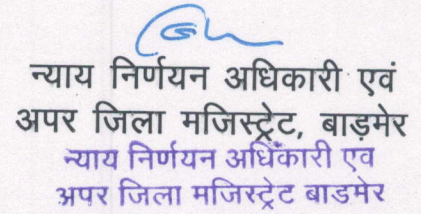 न्याय निर्णयन अधिकारी एवं
अपर जिला मजिस्ट्रेट, बाड़मेर
न्याय निर्णयन अधिकारी एव
अपर जिला मजिस्ट्रेट बाडमेर